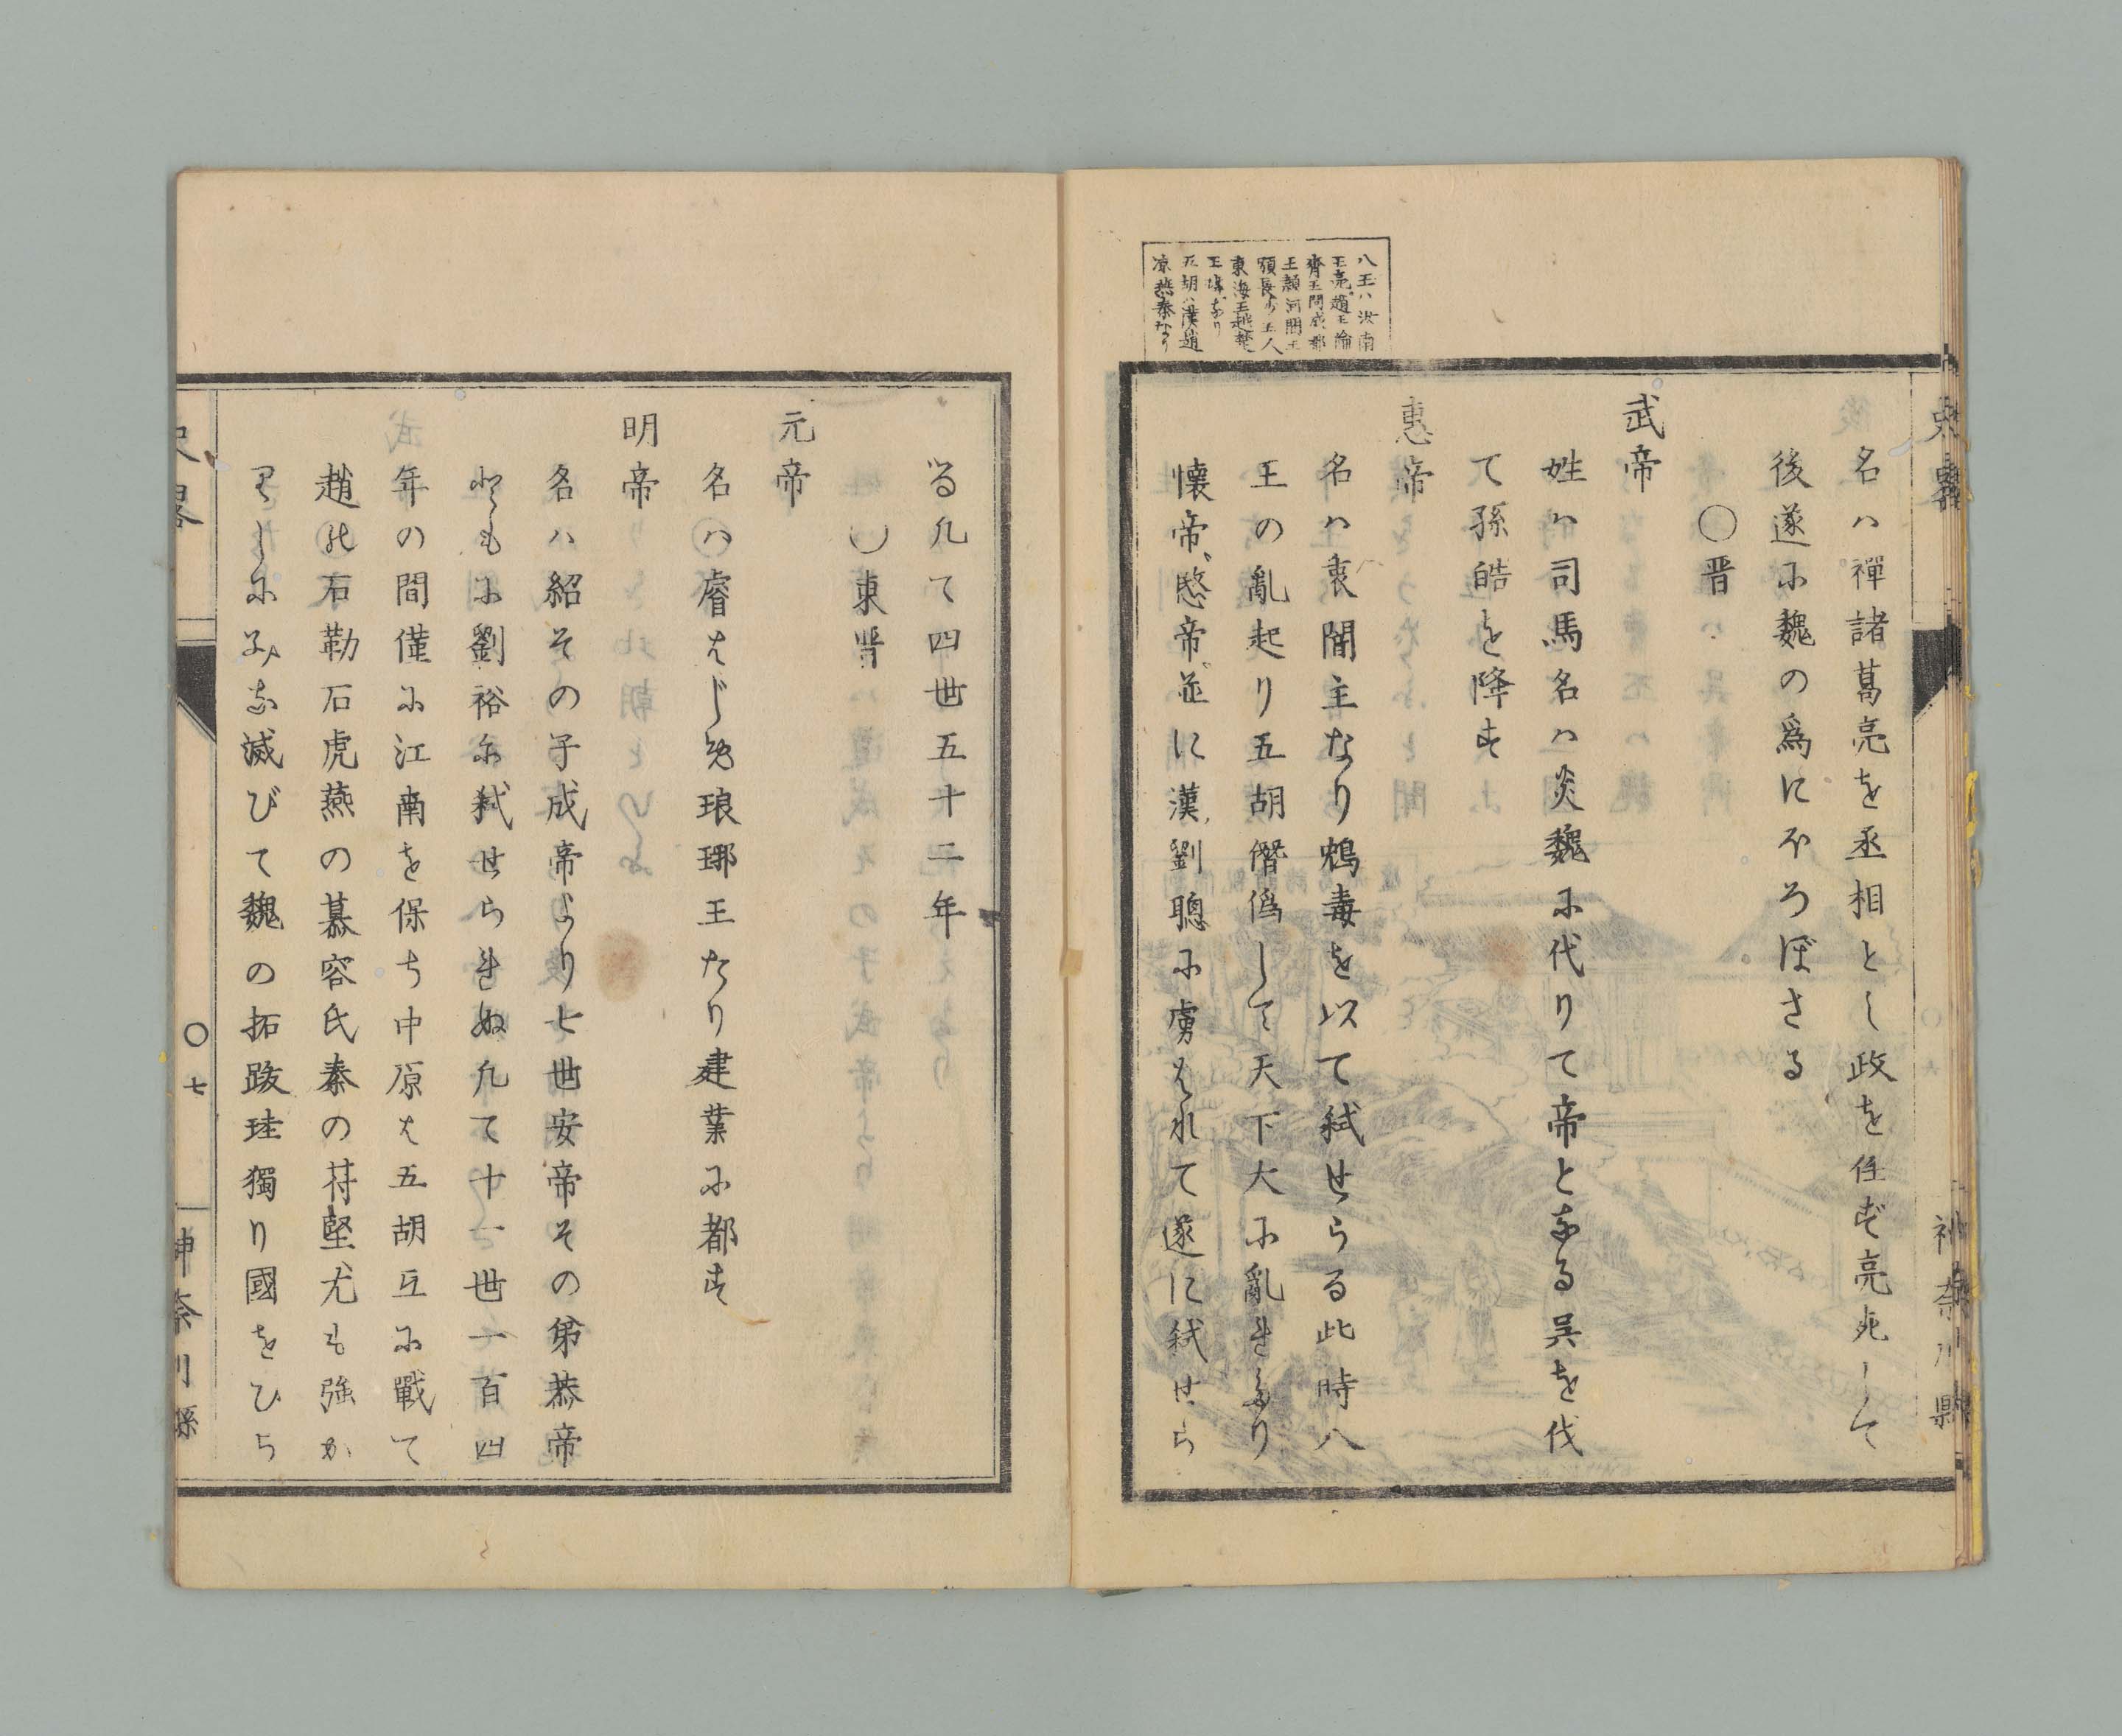 史畧
神奈川縣
八王ハ汝南
王亮趙王倫
齊王冏成都
王頴河間王
顒長沙王乂
東海王越楚
王瑋なり
五胡ハ漢趙
凉燕秦なり
名ハ禪諸葛亮を丞相とし政を任ず亮死して
後遂に魏の爲にほろぼさる
〇晋
武帝
姓ハ司馬名ハ炎魏に代りて帝となる呉を伐
て孫皓を降す
惠帝
名ハ衷闇主なり鴆毒を以て弑せらる此時八
王の亂起り五胡僭僞して天下大に亂れたり
懷帝、愍帝、並に漢、劉聰に虜はれて遂に弑せら
る凡て四世五十二年
〇東晋
元帝
名ハ睿はじめ琅琊王たり建業に都す
明帝
名ハ紹その子成帝より七世安帝その弟恭帝
ともに劉裕に弑せられぬ凡て十一世一百四
年の間僅に江南を保ち中原は五胡互に戰て
趙の石勒石虎燕の慕容氏秦の苻堅尤も強か
りしにみな滅びて魏の拓跋珪獨り國をひら
史畧
〇七
神奈川縣